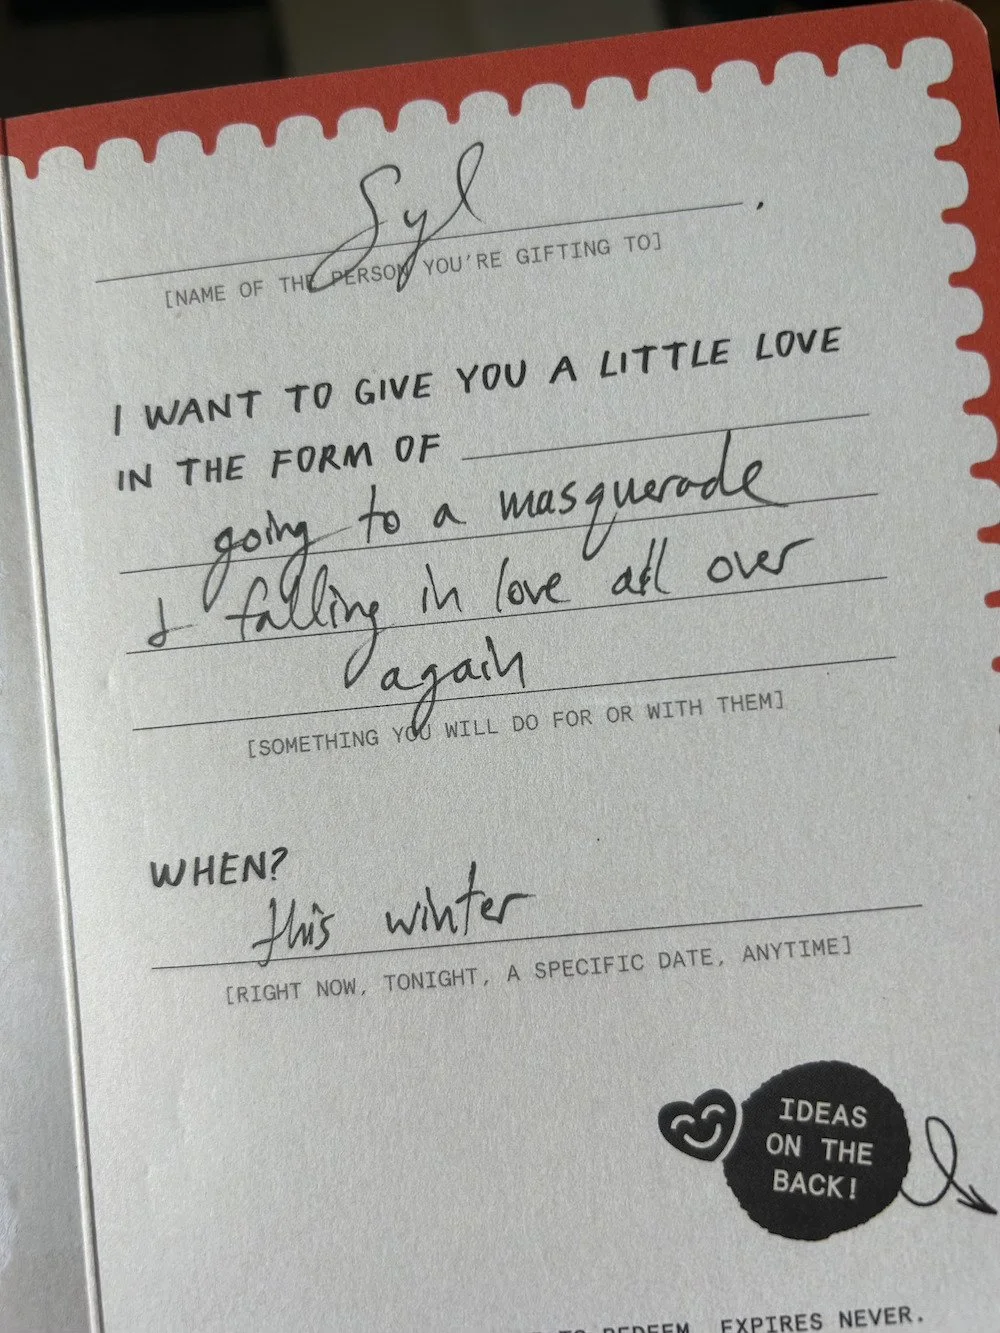 Syl.
[NAME OF THE PERSON YOU'RE GIFTING TO]
I WANT TO GIVE YOU A LITTLE LOVE
IN THE FORM OF
going to a masquerade
& falling in love all over
again
[SOMETHING YOU WILL DO FOR OR WITH THEM]
WHEN?
this winter
[RIGHT NOW, TONIGHT, A SPECIFIC DATE, ANYTIME]
IDEAS
ON THE
BACK!
TO REDEEM. EXPIRES NEVER.